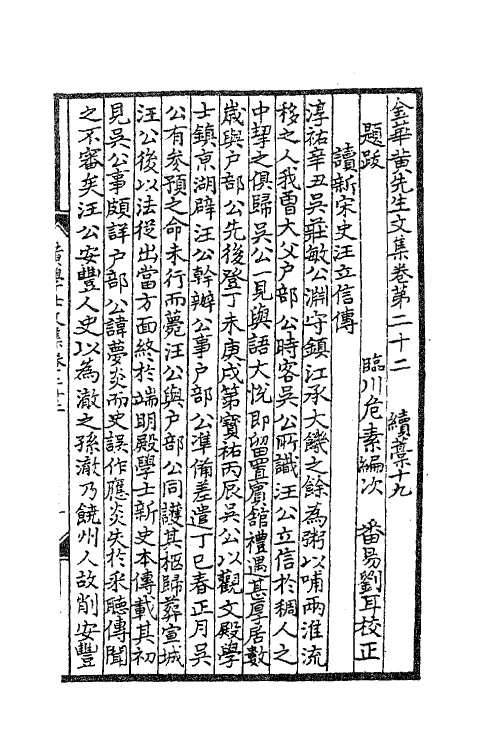 金華黃先生文集卷第二十二　續藁十九
臨川危素編次　番易劉耳校正
題跋
讀新宋史汪立信傳
淳祐辛丑吳莊敏公淵守鎮江承大饑之餘為粥以哺兩淮流
移之人我曾大父户部公時客吳公所識汪公立信於稠人之
中挈之俱歸吳公一見與語大悅即留置賓舘禮遇甚厚居數
歲與户部公先後登丁未庚戌第寶祐丙辰吳公以觀文殿學
士鎮京湖辟汪公幹辦公事户部公準備差遣丁巳春正月吳
公有参預之命未行而薨汪公與户部公同護其柩歸葬宣城
汪公後以法從出當方面終於端明殿學士新史本傳載其初
見吳公事頗詳户部公諱夢炎而史誤作應炎失於承聽傳聞
之不審矣汪公安豐人史以為澈之孫澈乃饒州人故削安豐